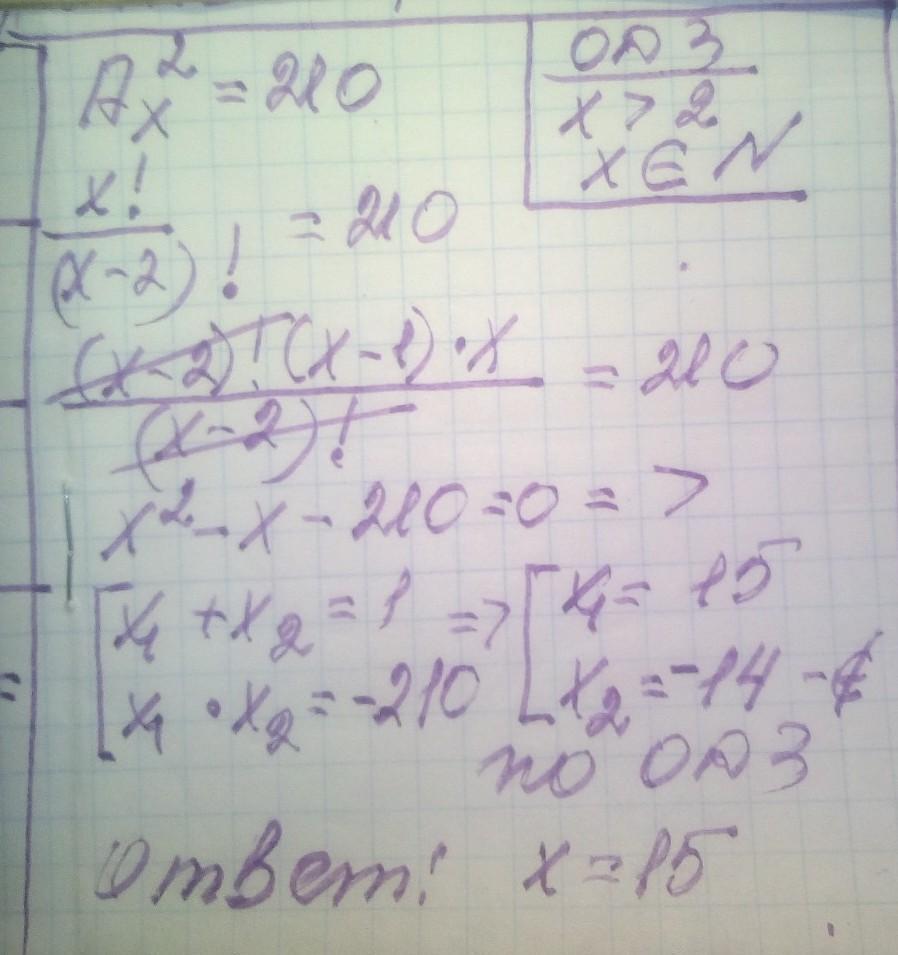 A_x^2 = 210
ОДЗ
x > 2
x ∈ N
x! / (x-2)! = 210
(x-2)! (x-1) · x / (x-2)! = 210
x² - x - 210 = 0 =>
[ x₁ + x₂ = 1 => [ x₁ = 15
x₁ · x₂ = -210 x₂ = -14 - ∉
по ОДЗ
Ответ: x = 15